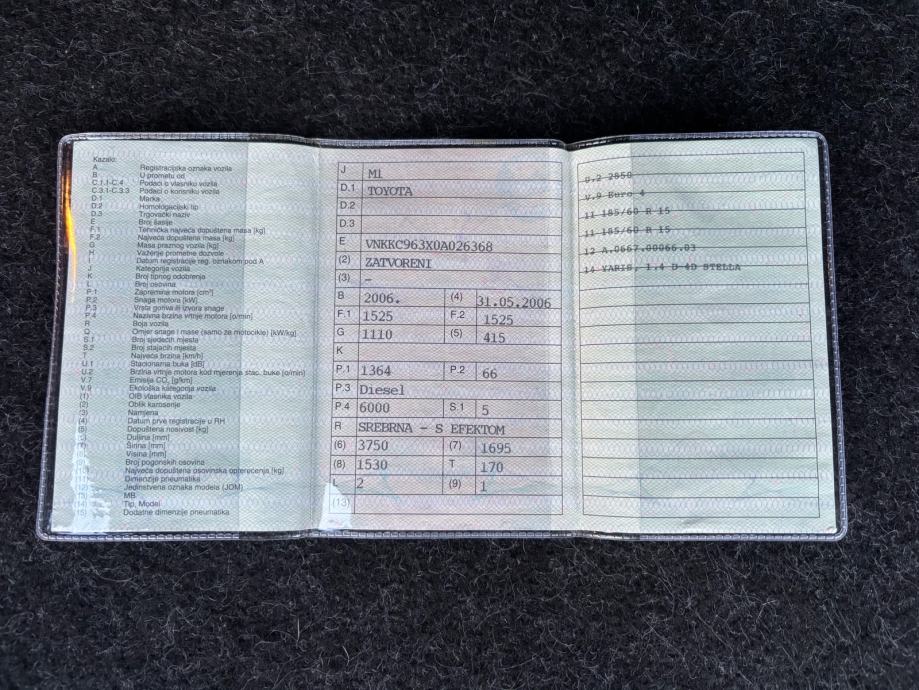 Kazalo:
A Registracijska oznaka vozila
B U prometu od
C.1.1-C.4 Podaci o vlasniku vozila
C.3.1-C.3.3 Podaci o korisniku vozila
D.1 Marka
D.2 Homologacijski tip
D.3 Trgovački naziv
E Broj šasije
F.1 Tehnička najveća dopuštena masa [kg]
F.2 Najveća dopuštena masa [kg]
G Masa praznog vozila [kg]
H Važenje prometne dozvole
I Datum registracije reg. oznakom pod A
J Kategorija vozila
K Broj tipnog odobrenja
L Broj osovina
P.1 Zapremina motora [cm³]
P.2 Snaga motora [kW]
P.3 Vrsta goriva ili izvora snage
P.4 Nazivna brzina vrtnje motora [o/min]
R Boja vozila
Q Omjer snage i mase (samo za motocikle) [kW/kg]
S.1 Broj sjedećih mjesta
S.2 Broj stajaćih mjesta
T Najveća brzina [km/h]
U.1 Stacionarna buka [dB]
U.2 Brzina vrtnje motora kod mjerenja stac. buke [o/min]
V.7 Emisija CO₂ [g/km]
V.9 Ekološka kategorija vozila
(1) OIB vlasnika vozila
(2) Oblik karoserije
(3) Namjena
(4) Datum prve registracije u RH
(5) Dopuštena nosivost [kg]
Duljina [mm]
Širina [mm]
Visina [mm]
Broj pogonskih osovina
Najveća dopuštena osovinska opterećenja [kg]
Dimenzije pneumatika
Jedinstvena oznaka modela (JOM)
MB
(14) Tip, Model
(15) Dodatne dimenzije pneumatika
J M1
D.1 TOYOTA
D.2
D.3
E VNKKC963X0A026368
(2) ZATVORENI
(3) –
B 2006. (4) 31.05.2006
F.1 1525 F.2 1525
G 1110 (5) 415
K
P.1 1364 P.2 66
P.3 Diesel
P.4 6000 S.1 5
R SREBRNA - S EFEKTOM
(6) 3750 (7) 1695
(8) 1530 T 170
L 2 (9) 1
(13)
U.2 2850
V.9 Euro 4
11 185/60 R 15
11 185/60 R 15
12 A.0667.00066.03
14 YARIS, 1.4 D-4D STELLA